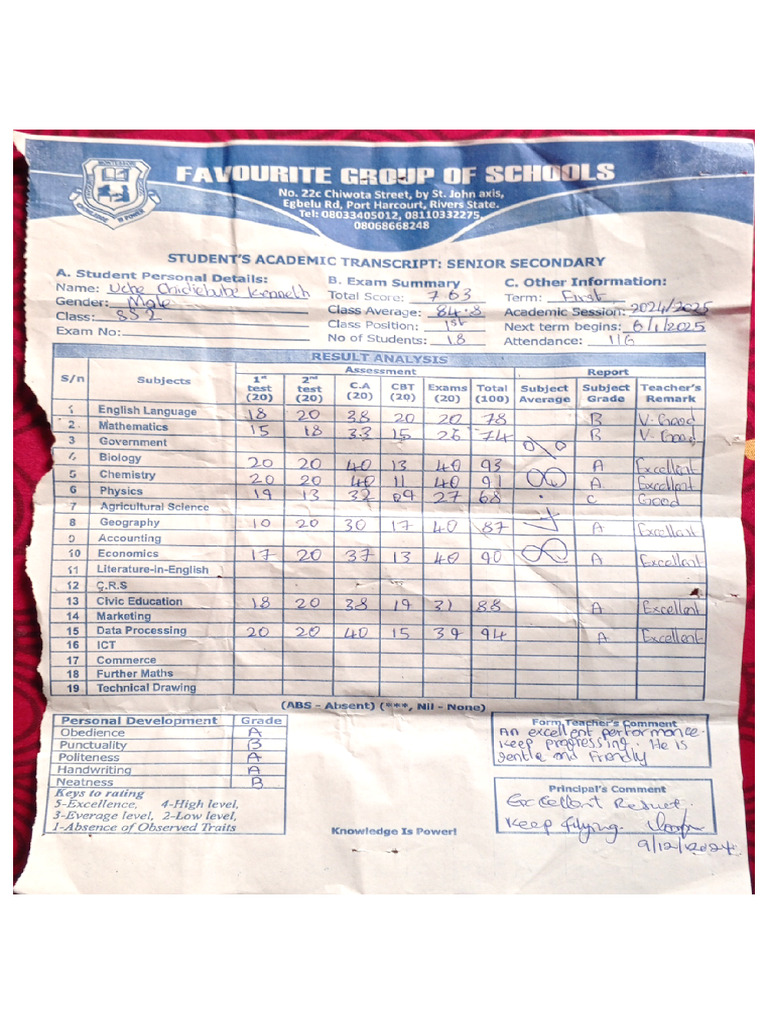 MONTESSORI
KNOWLEDGE IS POWER
FAVOURITE GROUP OF SCHOOLS
No. 22c Chiwota Street, by St. John axis,
Egbelu Rd, Port Harcourt, Rivers State.
Tel: 08033405012, 08110332275,
08068668248
STUDENT'S ACADEMIC TRANSCRIPT: SENIOR SECONDARY
A. Student Personal Details: B. Exam Summary C. Other Information:
Name: Uche Chidiebube Kenneth Total Score: 763 Term: First
Gender: Male Class Average: 84.8 Academic Session: 2024/2025
Class: SS2 Class Position: 1st Next term begins: 6/1/2025
Exam No: No of Students: 18 Attendance: 116
RESULT ANALYSIS
Assessment Report
S/n Subjects 1st test (20) 2nd test (20) C.A (20) CBT (20) Exams (20) Total (100) Subject Average Subject Grade Teacher's Remark
1 English Language 18 20 38 20 20 78 B V. Good
2 Mathematics 15 18 33 15 26 74 B V. Good
3 Government
4 Biology 20 20 40 13 40 93 A Excellent
5 Chemistry 20 20 40 11 40 91 A Excellent
6 Physics 19 13 32 09 27 68 C Good
7 Agricultural Science
8 Geography 10 20 30 17 40 87 A Excellent
9 Accounting
10 Economics 17 20 37 13 40 90 A Excellent
11 Literature-in-English
12 C.R.S
13 Civic Education 18 20 38 19 31 88 A Excellent
14 Marketing
15 Data Processing 20 20 40 15 39 94 A Excellent
16 ICT
17 Commerce
18 Further Maths
19 Technical Drawing
(ABS - Absent) (***, Nil - None)
Personal Development Grade
Obedience A
Punctuality B
Politeness A
Handwriting A
Neatness B
Keys to rating
5-Excellence, 4-High level,
3-Everage level, 2-Low level,
1-Absence of Observed Traits
Form Teacher's Comment
An excellent performance.
Keep progressing. He is
gentle and friendly
Principal's Comment
Excellent Result.
Keep flying.
9/12/2024
Knowledge Is Power!